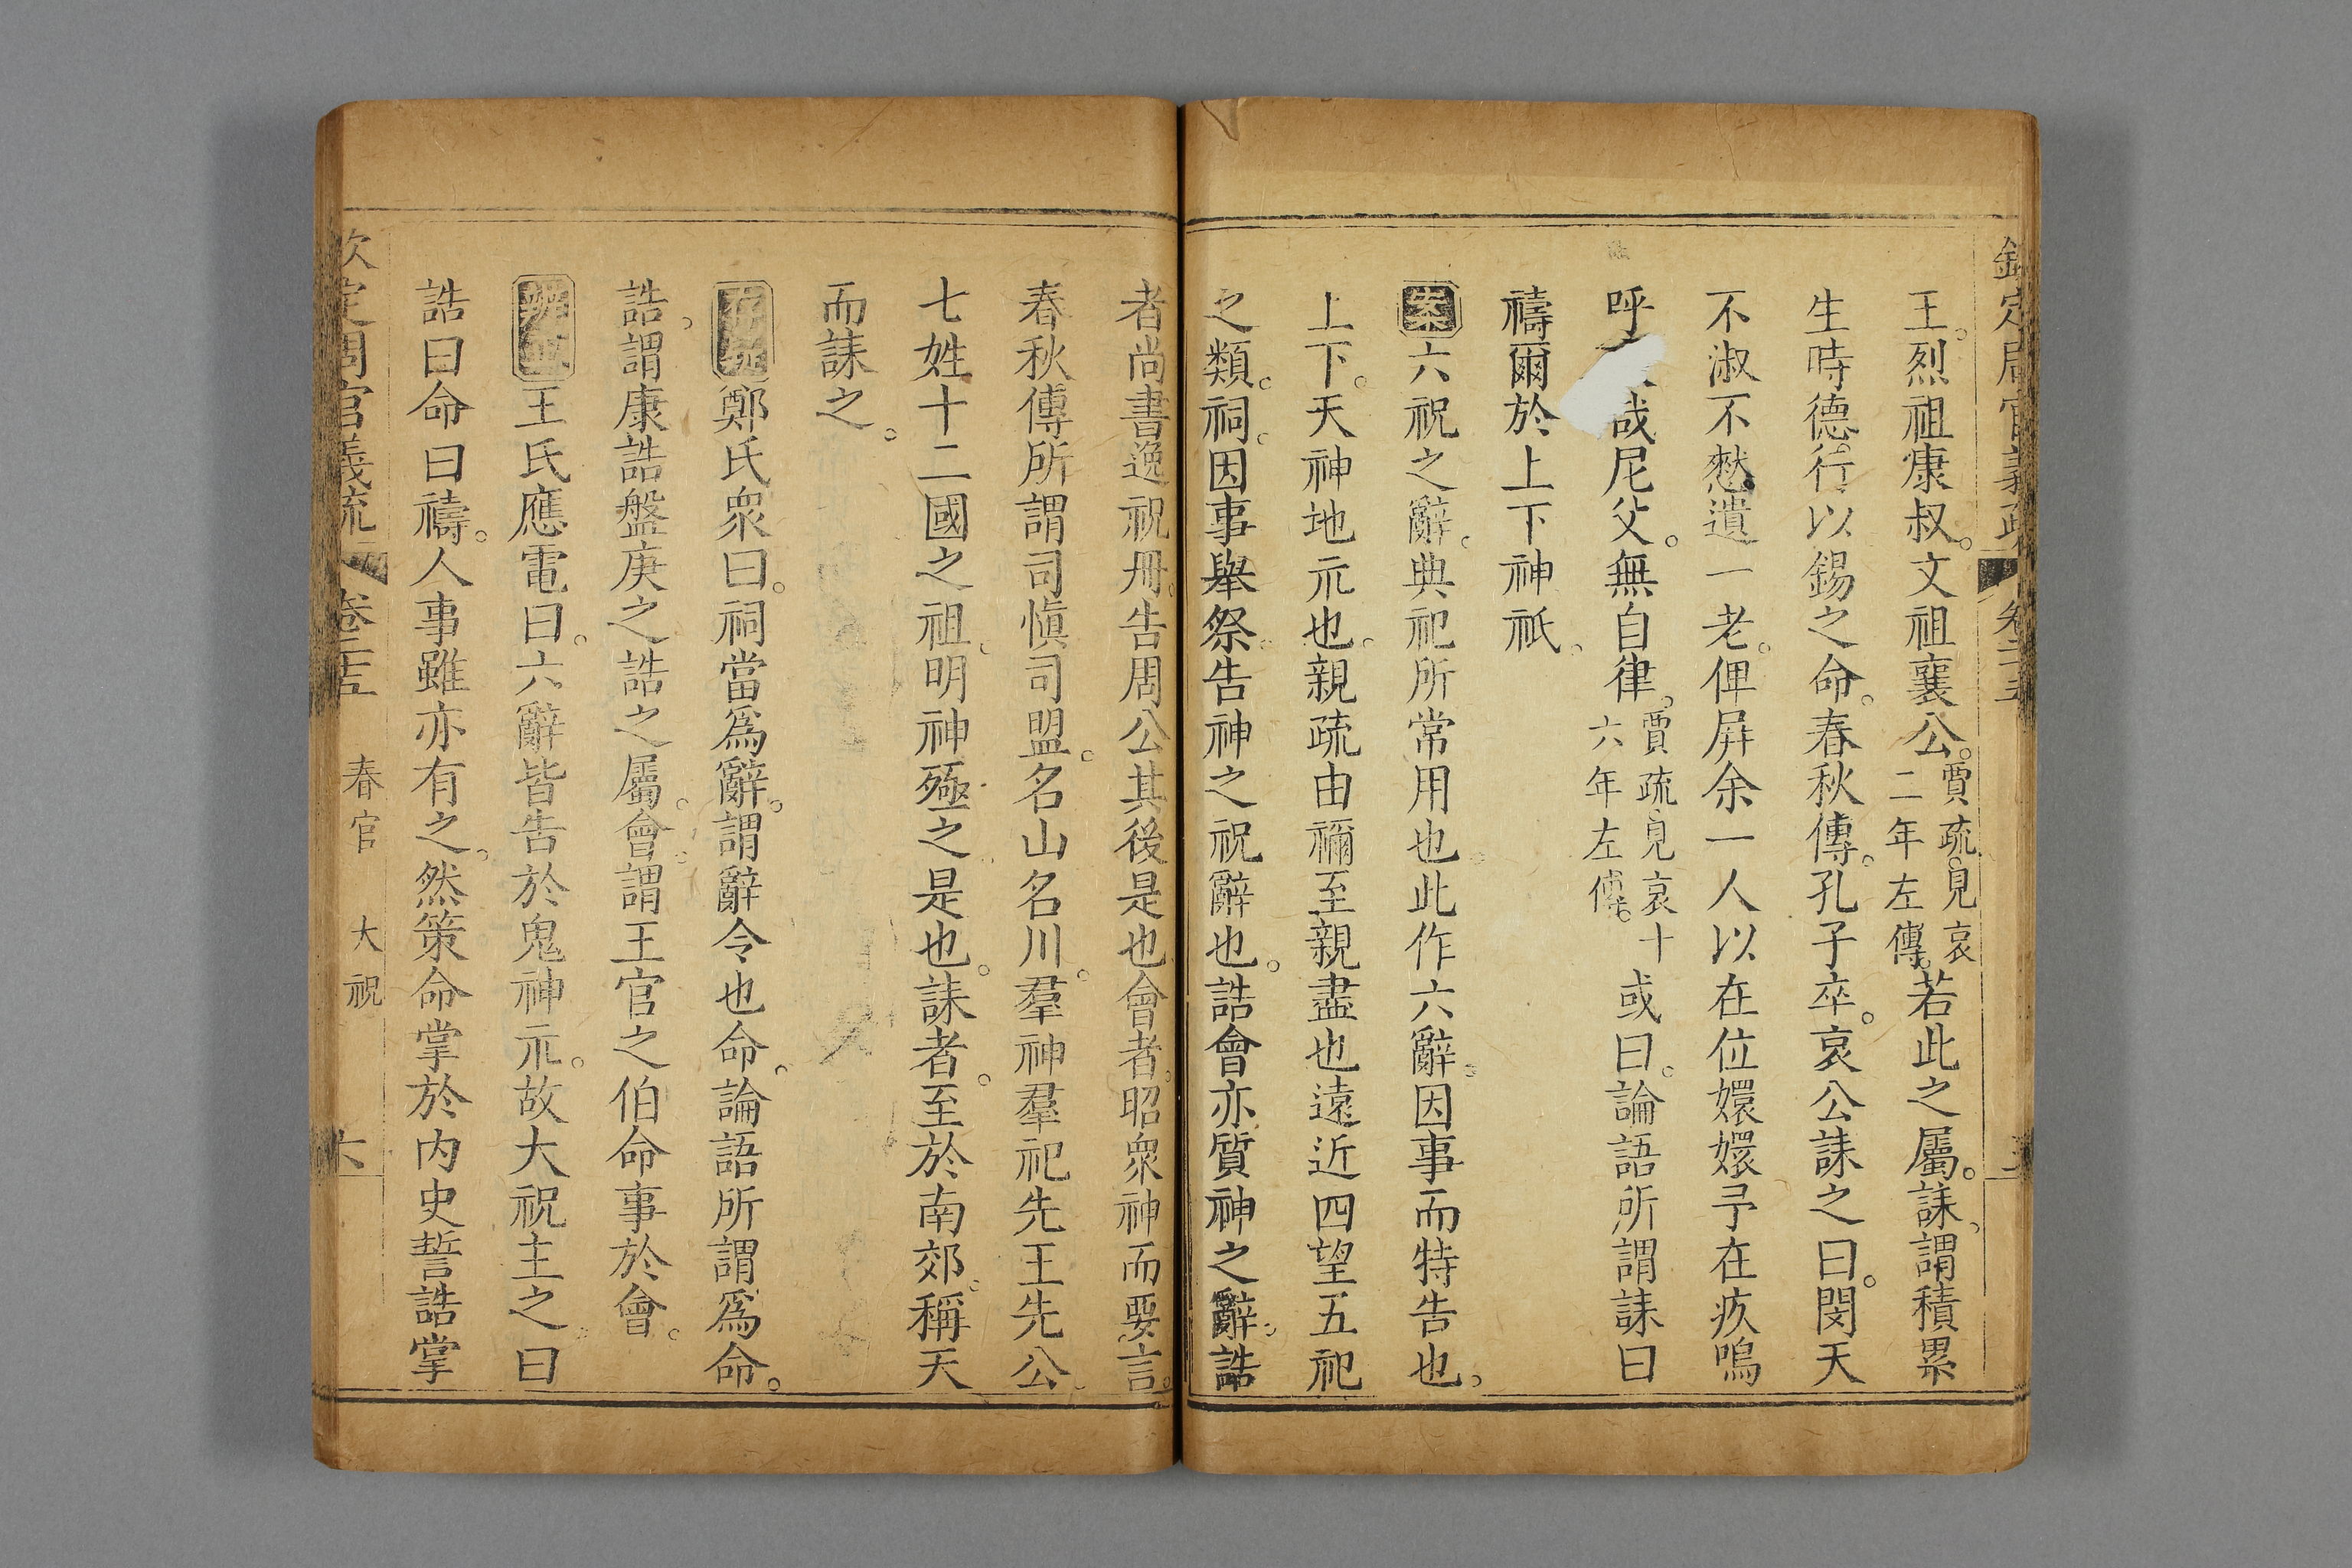 欽定周官義疏 卷二十五
王。烈祖康叔。文祖襄公。賈疏。見哀二年左傳。若此之屬。誄。謂積累
生時德行。以錫之命。春秋傳。孔子卒。哀公誄之曰。閔天
不淑。不憖遺一老。俾屏余一人以在位。嬛嬛予在疚。嗚
呼哉尼父。無自律。賈疏。見哀十六年左傳。或曰。論語所謂誄曰
禱爾於上下神祇。
案六祝之辭。典祀所常用也。此作六辭。因事而特告也。
上下。天神地示也。親疏由禰至親盡也。遠近四望五祀
之類。祠。因事舉祭。告神之祝辭也。誥會亦質神之辭。誥
者尚書逸祝冊。告周公其後是也。會者。昭衆神而要言。
春秋傳所謂司愼司盟。名山名川。羣神羣祀。先王先公。
七姓十二國之祖。明神殛之是也。誄者。至於南郊。稱天
而誄之。
鄭氏衆曰。祠當爲辭。謂辭令也。命。論語所謂爲命。
誥。謂康誥盤庚之誥之屬。會。謂王官之伯命事於會。
王氏應電曰。六辭皆告於鬼神示。故大祝主之。曰
誥曰命曰禱。人事雖亦有之。然策命掌於內史。誓誥掌
欽定周官義疏 卷二十五 春官 大祝